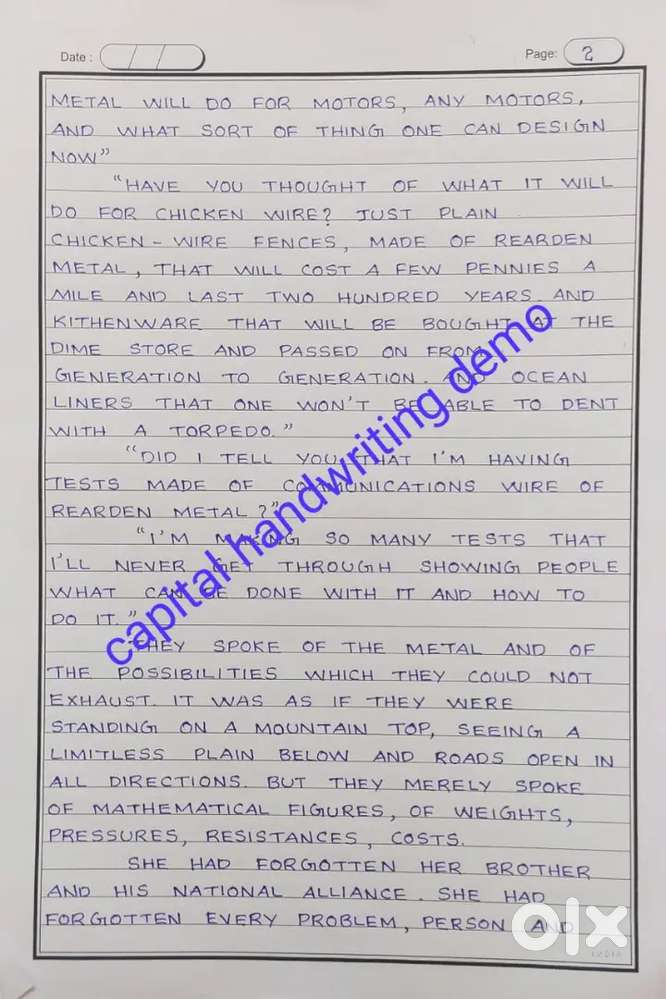 Date : / /
Page: 2
METAL WILL DO FOR MOTORS, ANY MOTORS,
AND WHAT SORT OF THING ONE CAN DESIGN
NOW"
"HAVE YOU THOUGHT OF WHAT IT WILL
DO FOR CHICKEN WIRE? JUST PLAIN
CHICKEN - WIRE FENCES, MADE OF REARDEN
METAL, THAT WILL COST A FEW PENNIES A
MILE AND LAST TWO HUNDRED YEARS. AND
KITHENWARE THAT WILL BE BOUGHT AT THE
DIME STORE AND PASSED ON FROM
GENERATION TO GENERATION. AND OCEAN
LINERS THAT ONE WON'T BE ABLE TO DENT
WITH A TORPEDO."
"DID I TELL YOU THAT I'M HAVING
TESTS MADE OF COMMUNICATIONS WIRE OF
REARDEN METAL?"
"I'M MAKING SO MANY TESTS THAT
I'LL NEVER GET THROUGH SHOWING PEOPLE
WHAT CAN BE DONE WITH IT AND HOW TO
DO IT."
THEY SPOKE OF THE METAL AND OF
THE POSSIBILITIES WHICH THEY COULD NOT
EXHAUST. IT WAS AS IF THEY WERE
STANDING ON A MOUNTAIN TOP, SEEING A
LIMITLESS PLAIN BELOW AND ROADS OPEN IN
ALL DIRECTIONS. BUT THEY MERELY SPOKE
OF MATHEMATICAL FIGURES, OF WEIGHTS,
PRESSURES, RESISTANCES, COSTS.
SHE HAD FORGOTTEN HER BROTHER
AND HIS NATIONAL ALLIANCE. SHE HAD
FORGOTTEN EVERY PROBLEM, PERSON AND
capital handwriting demo
olx